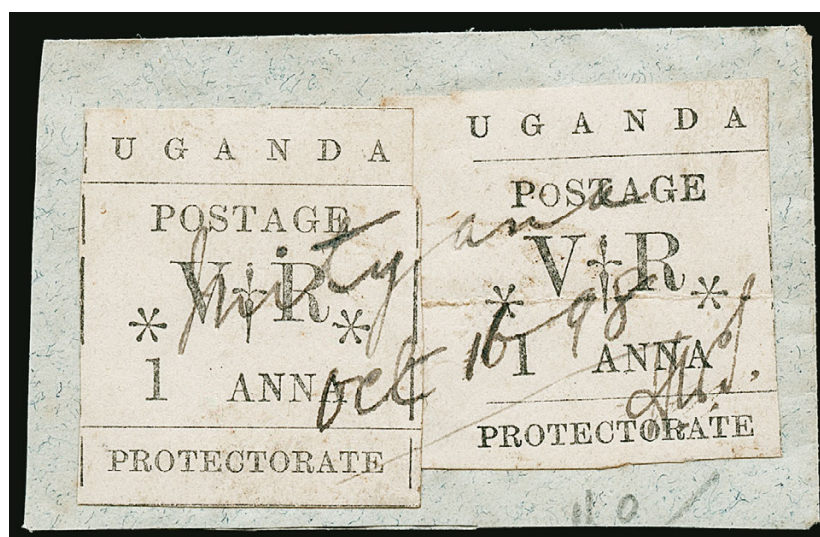 UGANDA
POSTAGE
V†R
* *
1 ANNA
PROTECTORATE
UGANDA
POSTAGE
V†R
* *
1 ANNA
PROTECTORATE
Mityana
Oct 16 98